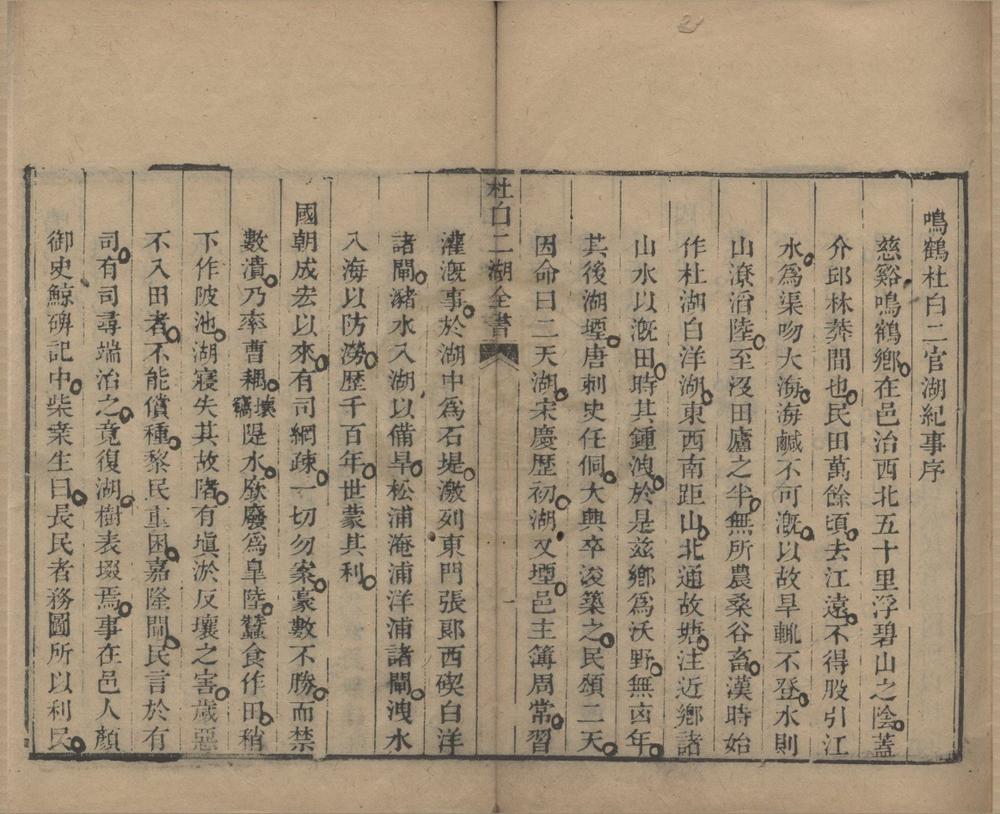 鳴鶴杜白二官湖紀事序
慈谿鳴鶴鄉在邑治西北五十里浮碧山之陰蓋
介邱林莽間也民田萬餘頃去江遠不得股引江
水爲渠吻大海海鹹不可漑以故旱輒不登水則
山潦滔陸至沒田廬之半無所農桑谷畜漢時始
作杜湖白洋湖東西南距山北通故塘注近鄉諸
山水以漑田時其鍾洩於是茲鄉爲沃野無凶年
其後湖堙唐刺史任侗大興卒浚築之民頌二天
因命曰二天湖宋慶歷初湖又堙邑主簿周常習
杜白二湖全書
一
灌漑事於湖中爲石堤激列東門張郞西碶白洋
諸閘瀦水入湖以備旱松浦淹浦洋浦諸閘洩水
入海以防澇歷千百年世蒙其利
國朝成宏以來有司網疎一切勿案豪數不勝而禁
數潰乃率曹耦壞竊隄水厥廢爲阜陸蠶食作田稍
下作陂池湖寖失其故陼有塡淤反壤之害歲惡
不入田者不能償種黎民重困嘉隆間民言於有
司有司尋端治之竟復湖樹表塓焉事在邑人顏
御史鯨碑記中柴桒生曰長民者務圖所以利民